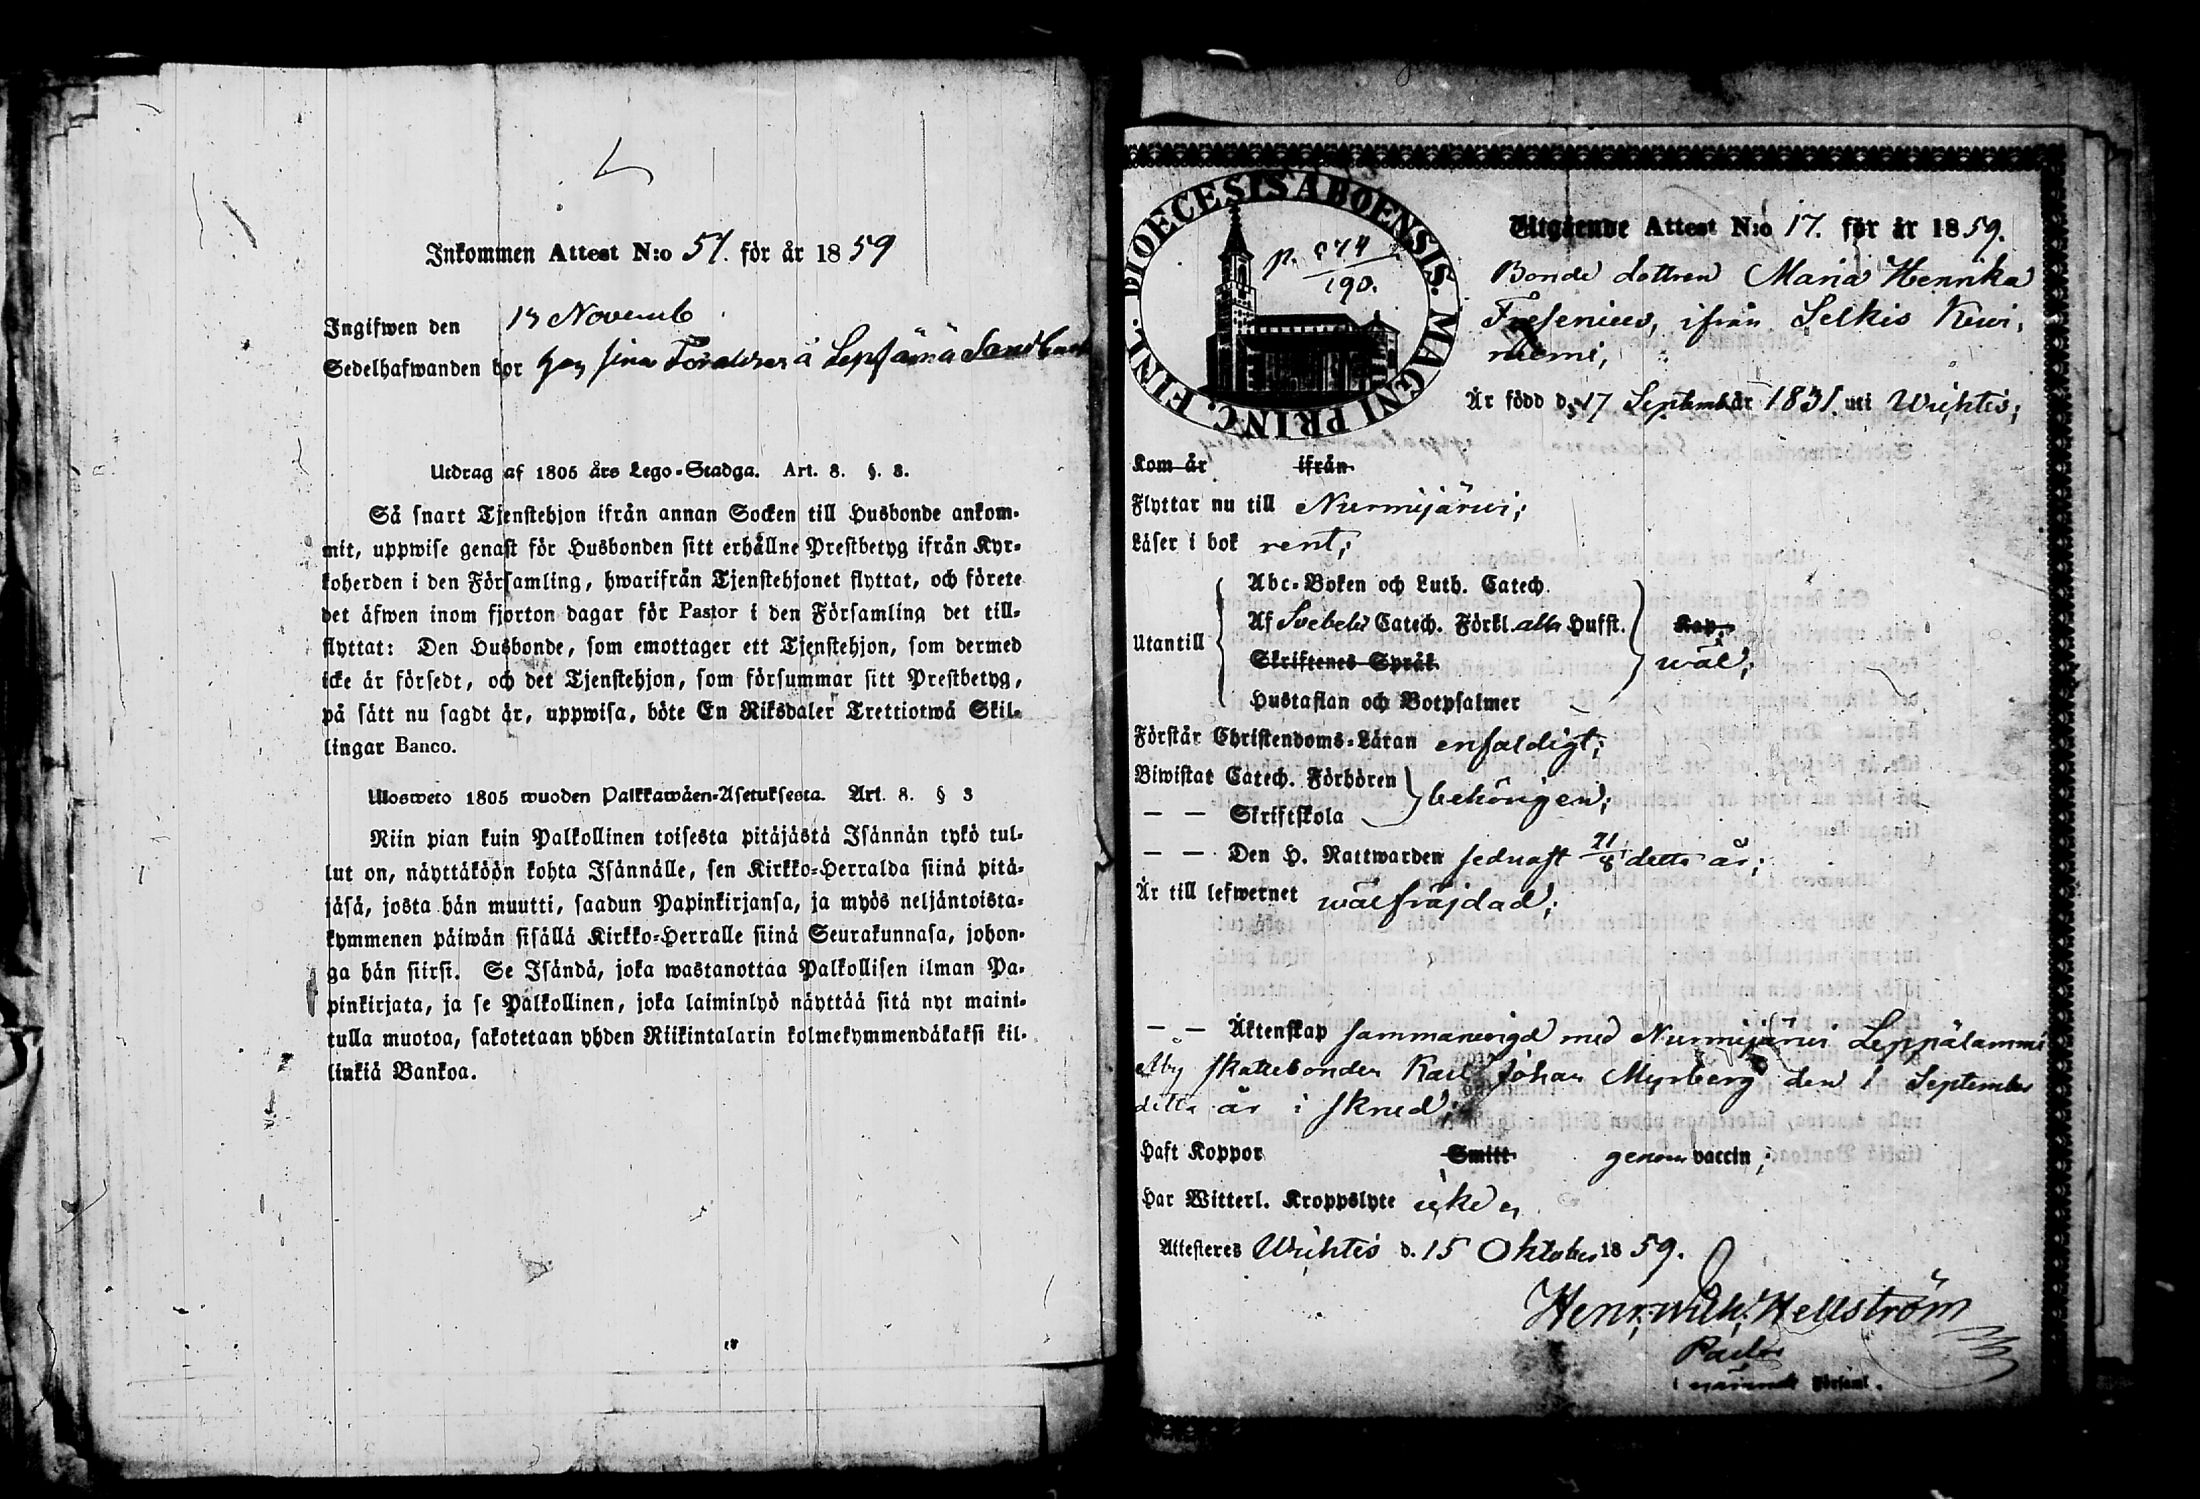 Inkommen Attest N:o 51. för år 1859
Ingifwen den 13 Novemb
Sedelhafwanden bor hos sina Föräldrar å
Utdrag af 1805 års Lego-Stadga. Art. 8. §. 3.
Så snart Tjenstehjon ifrån annan Socken till Husbonde ankom-
mit, uppwise genast för Husbonden sitt erhållne Prestbetyg ifrån Kyr-
koherden i den Församling, hwarifrån Tjenstehjonet flyttat, och förete
det äfwen inom fjorton dagar för Pastor i den Församling det till-
flyttat: Den Husbonde, som emottager ett Tjenstehjon, som dermed
icke är försedt, och det Tjenstehjon, som försummar sitt Prestbetyg,
på sätt nu sagdt är, uppwisa, böte En Riksdaler Trettiotwå Skil-
lingar Banco.
Ulosweto 1805 wuoden Palkkawäen-Asetuksesta. Art. 8. § 3
Niin pian kuin Palkollinen toisesta pitäjästä Isännän tykö tul-
lut on, näyttäköön kohta Isännälle, sen Kirkko-Herralda siinä pitä-
jäsä, josta hän muutti, saadun Papinkirjansa, ja myös neljäntoista-
kymmenen päiwän sisällä Kirkko-Herralle siinä Seurakunnasa, johon-
ga hän siirsi. Se Isändä, joka wastanottaa Palkollisen ilman Pa-
pinkirjata, ja se Palkollinen, joka laiminlyö näyttää sitä nyt maini-
tulla muotoa, sakotetaan yhden Riikintalarin kolmekymmendäkaksi kil-
linkiä Bankoa.
DIOECESIS ABOENSIS. MAGNI PRINC. FINL.
p. 674
190.
Utgående Attest N:o 17. för år 1859.
Bonde dottren Maria Henrika
Fresenius, ifrån Selkis Kiwi,
niemi,
Är född d. 17 September år 1831. uti Wichtis;
Kom år ifrån
Flyttar nu till Nurmijärwi;
Läser i bok rent;
Utantill
Abc-Boken och Luth. Catech.
Af Svebelii Catech. Förkl. alla Hufst.
Skriftenes Språk
Hustaflan och Botpsalmer
Kap.
wäl;
Förstår Christendoms-Läran enfaldigt;
Biwistat Catech. Förhören
behörigen;
— — Skriftskola
— — Den H. Nattwarden sednast 21/8 detta år;
Är till lefwernet wälfräjdad;
— — Äktenskap sammanwigd med Nurmijärwi Leppälammi
Åby skattebonden Karl Johan Myrberg den 1 September
detta år i skrud;
Haft Koppor Smitt genom vaccin;
Har Witterl. Kroppslyte icke
Attesteres Wichtis d. 15 Oktober 1859.
Henr. Wilh. Hellström
Pastor
i nämnde Församl.